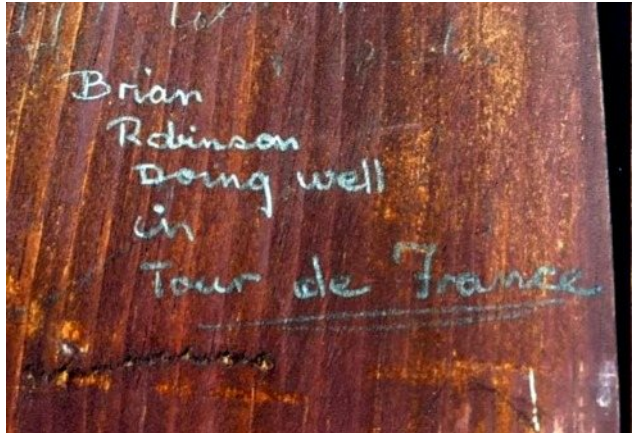 Brian
Robinson
Doing well
in
Tour de France